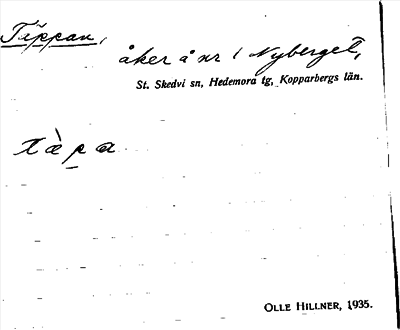 Täppan,
åker å nr 1 Nyberget,
St. Skedvi sn, Hedemora tg, Kopparbergs län.
tæ̀pa
OLLE HILLNER, 1935.